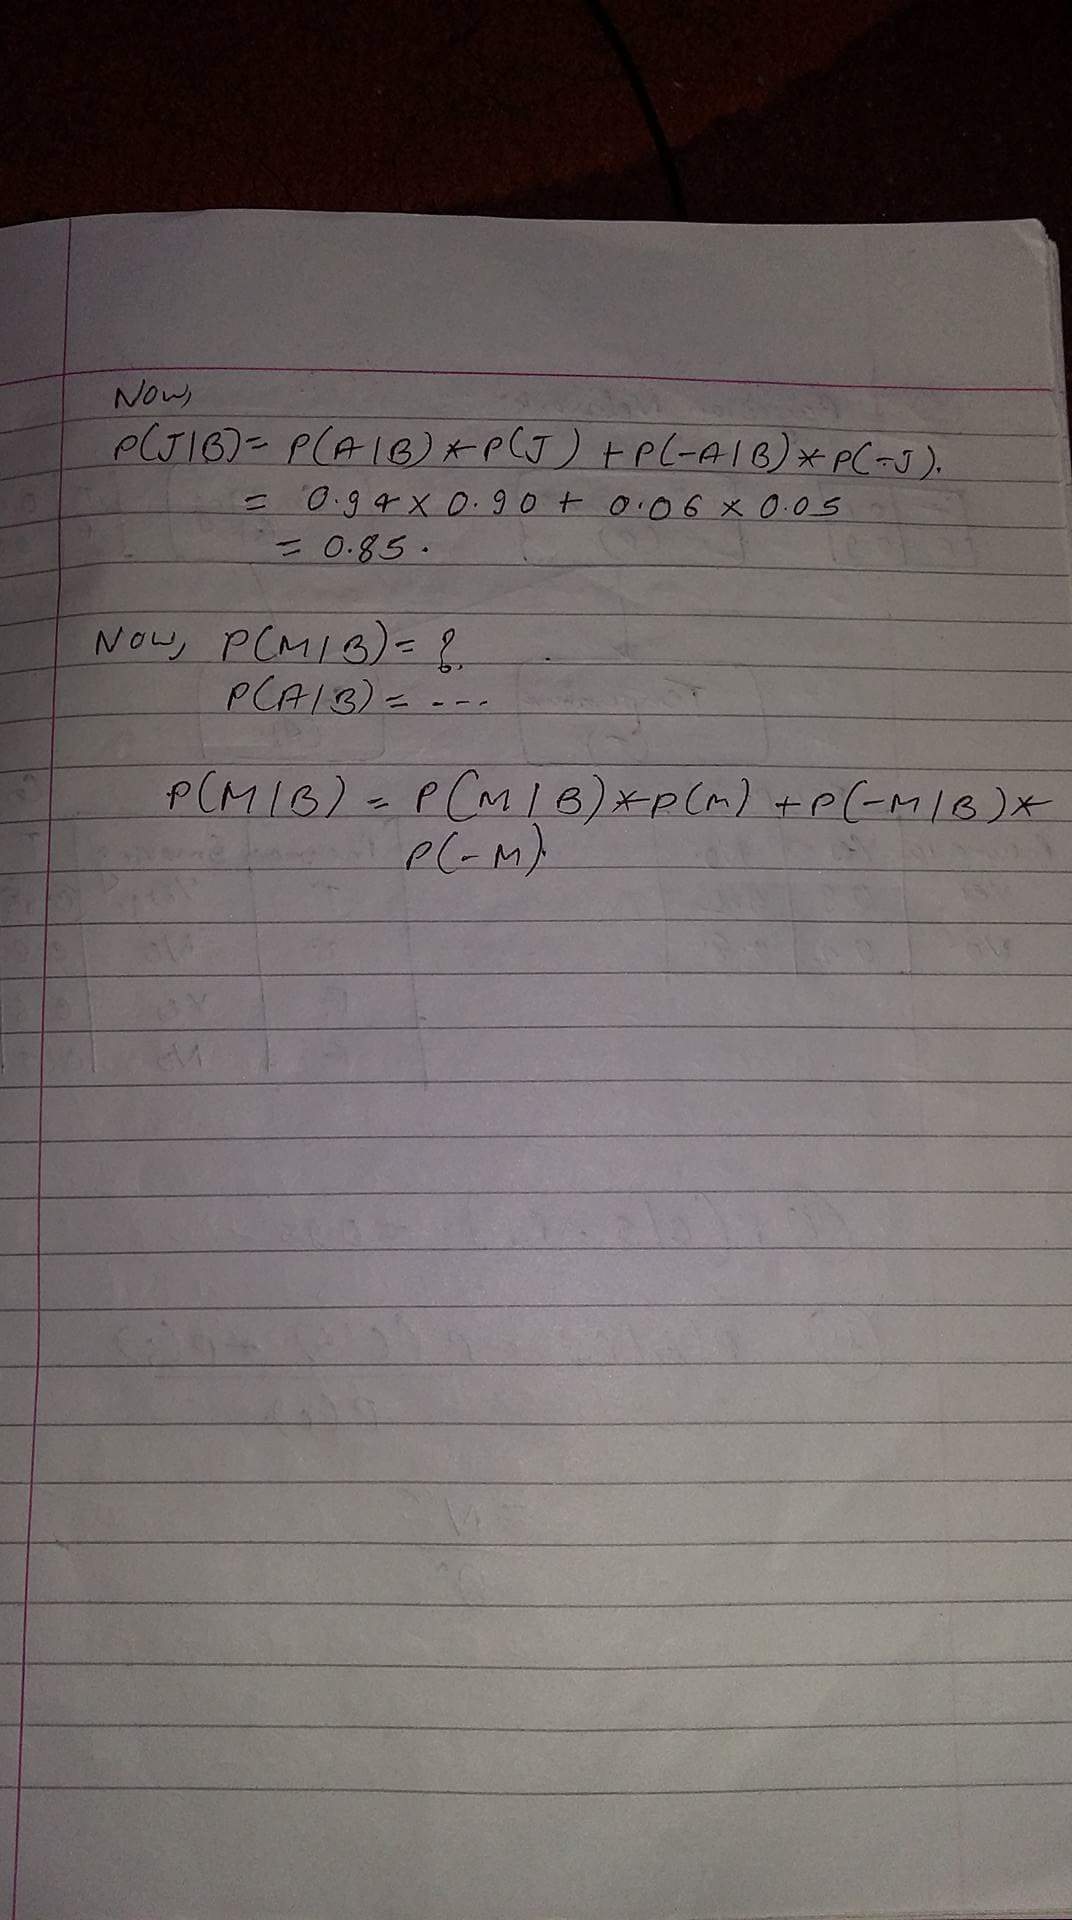 Now,
P(J|B)= P(A|B)*P(J) +P(-A|B)*P(-J).
= 0.94 x 0.90 + 0.06 x 0.05
= 0.85.
Now, P(M|B)= ?.
P(A|B)= ---
P(M|B) = P(M|B)*P(M) +P(-M|B)*
P(-M).